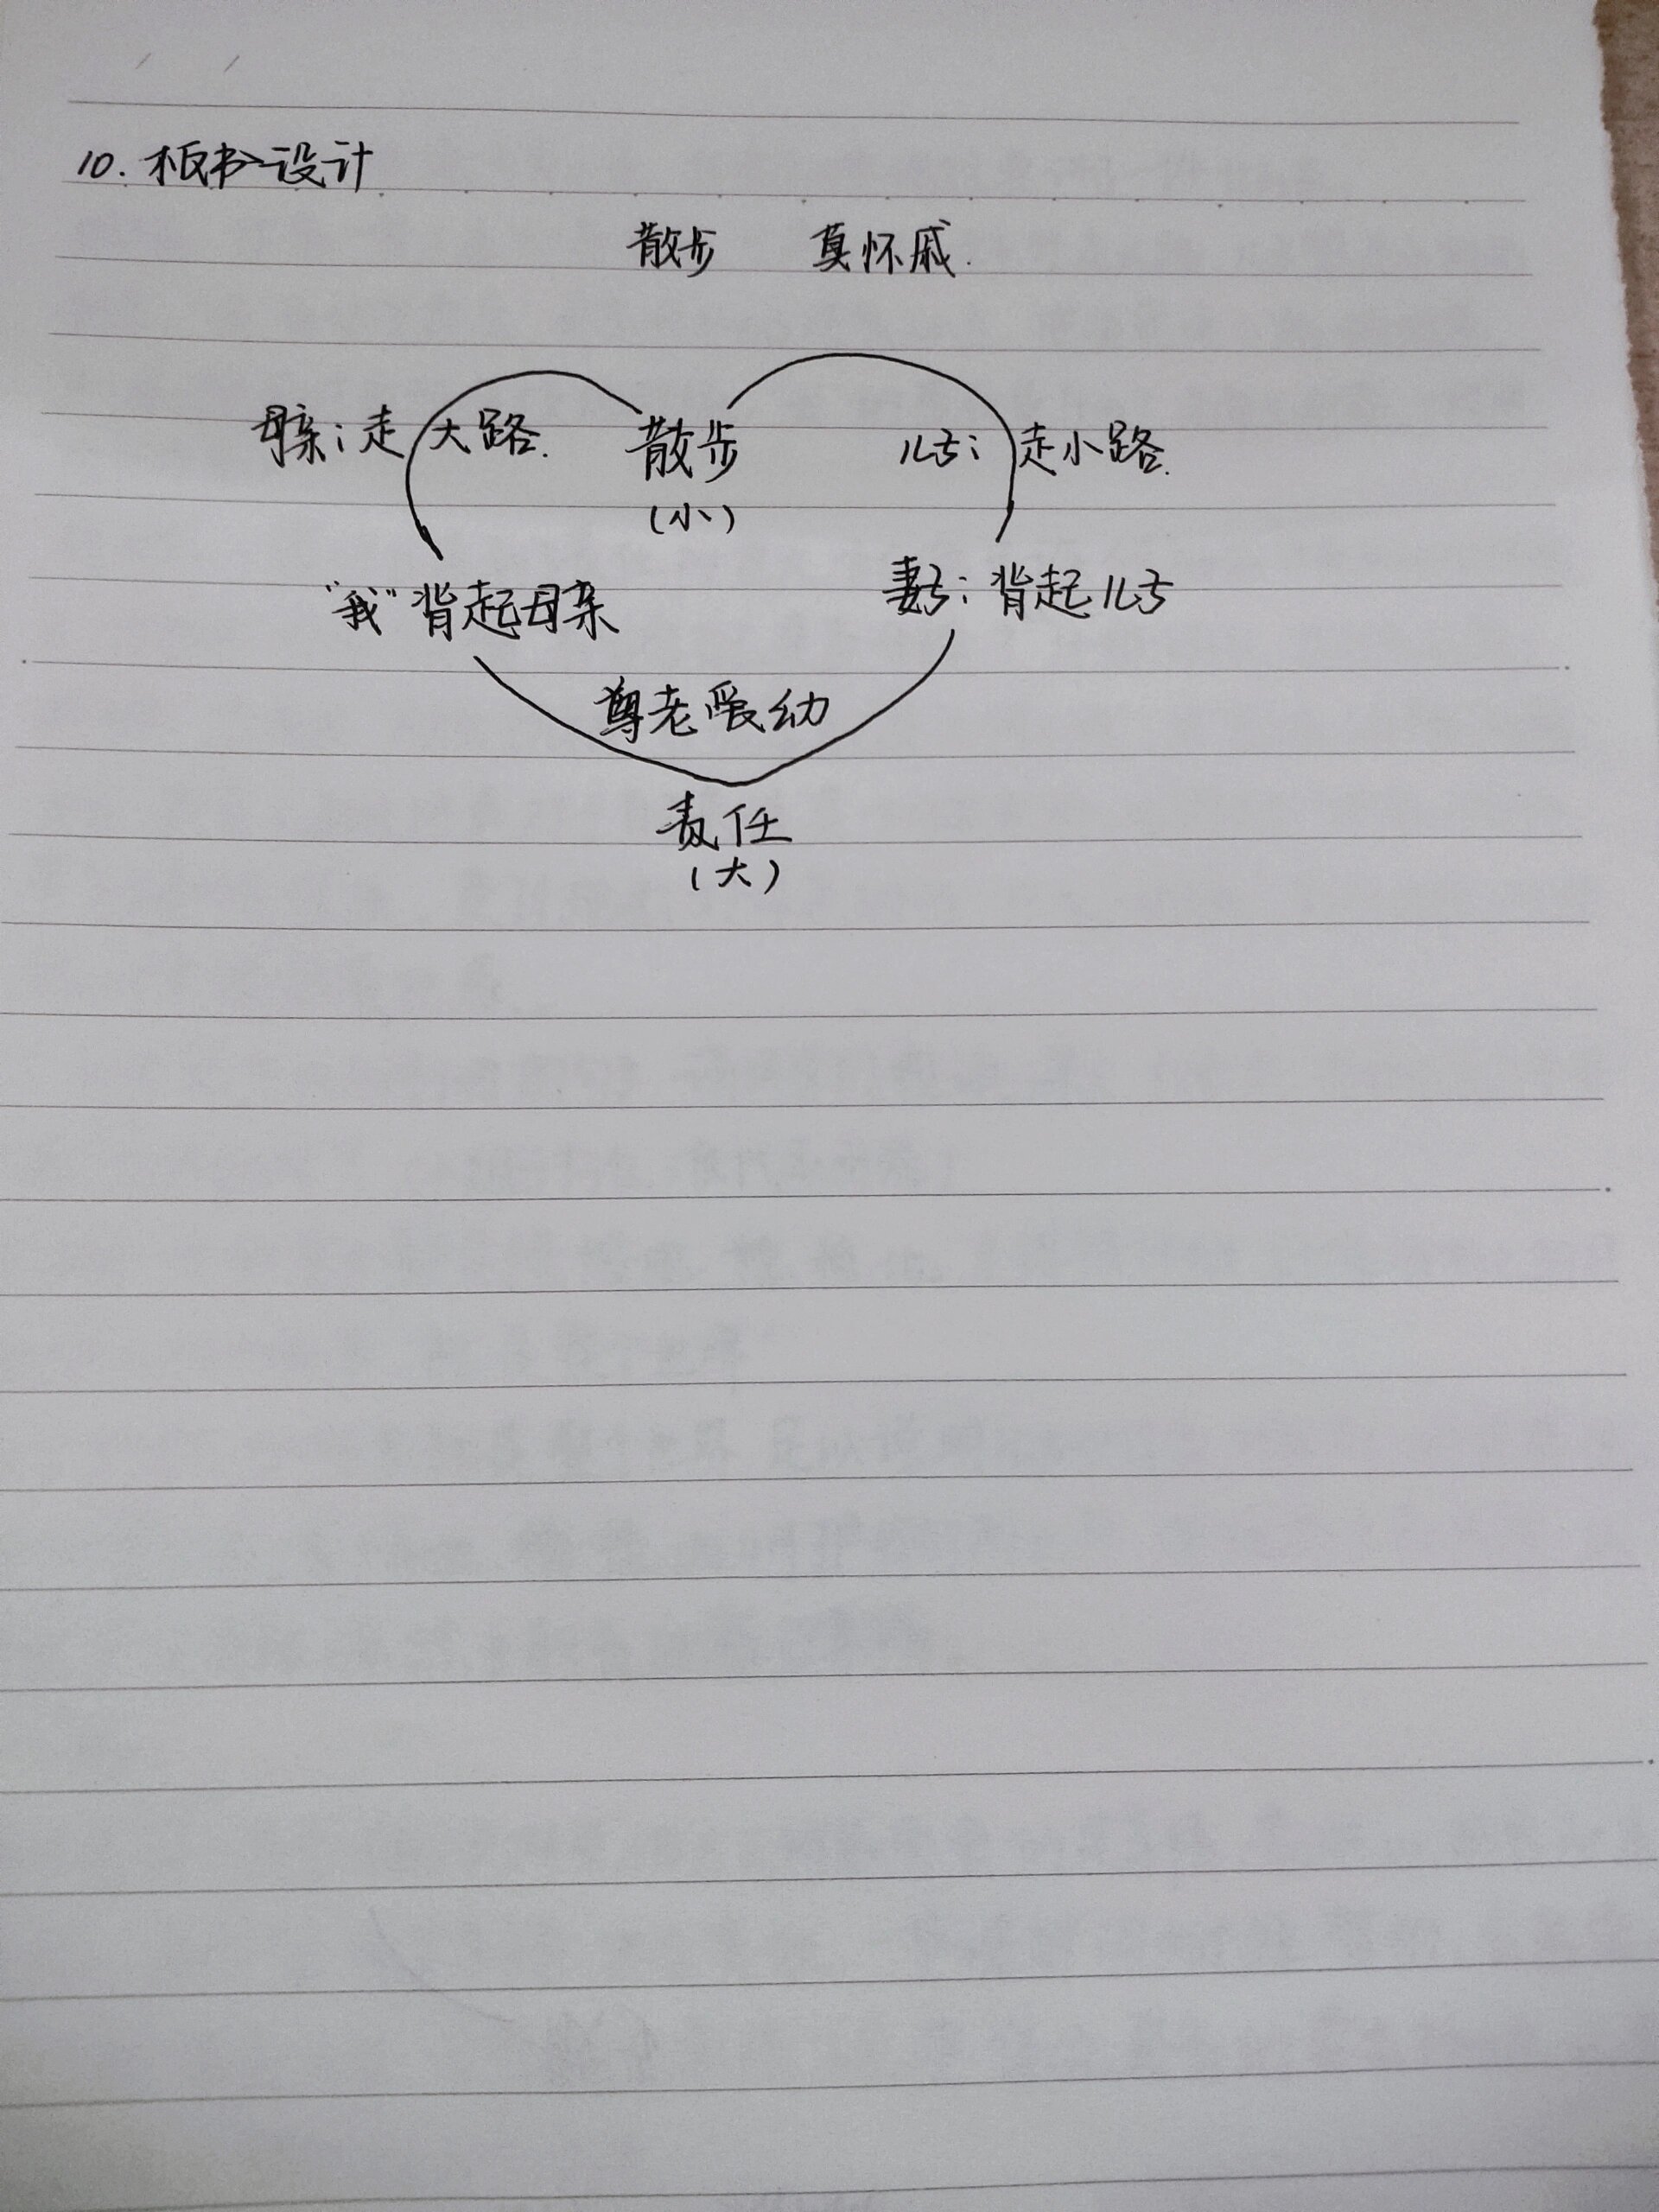 10. 板书设计
散步 莫怀戚.
母亲:走大路. 散步 儿子:走小路.
(小)
"我"背起母亲 妻子:背起儿子
尊老爱幼
责任
(大)